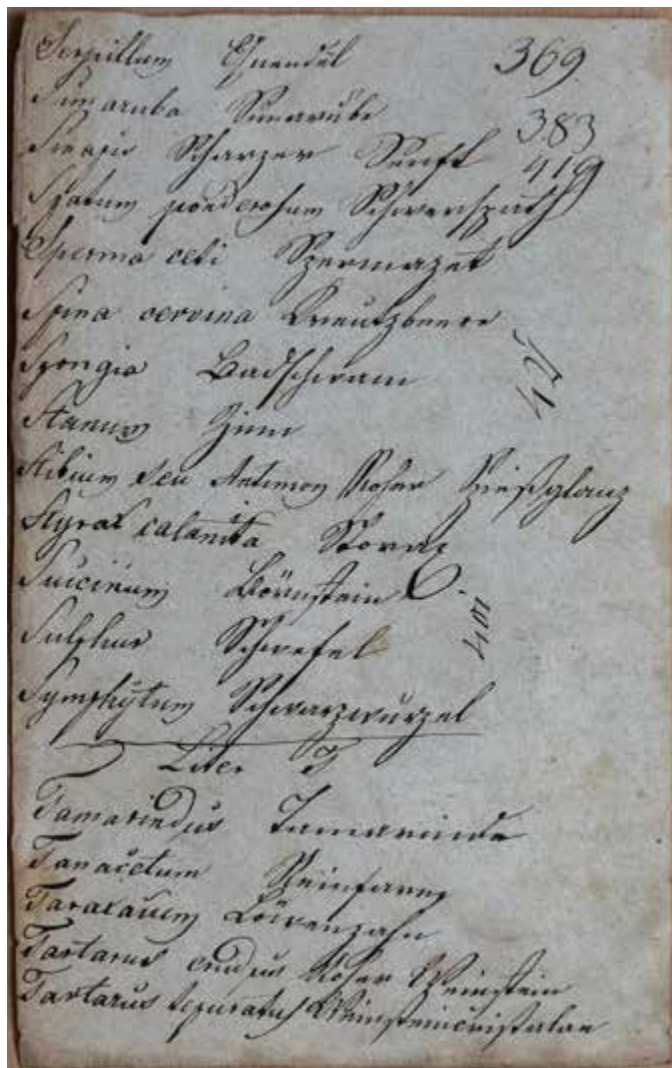 Serpillum Quendel 369.
Simaruba Simarube
383
Sinapis Scharzer Senft 419
Spatum ponderosum Schwerspath
Sperma ceti Szermazet
Spina cervina Kreutzbeere
Spongia Badschwam
Stanum Zinn
Stibium seu Antimon Roher Spießglanz
Styrax calamita Storax
Succinum Börnstein
Sulphur Schwefel
401
Symphÿtum Schwarzwurzel
Liter T
Tamarindus Tamarinde
Tanacetum Reinfarn
Taraxacum Löwenzahn
Tartarus crudus Roher Weinstein
Tartarus depuratus Weinsteincristalae